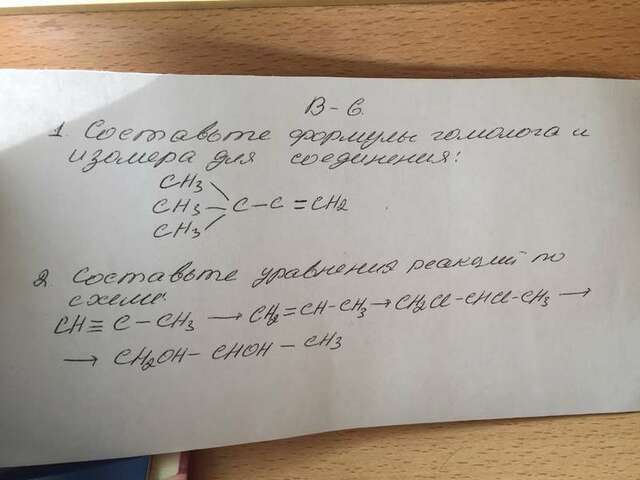 В-6.
1. Составьте формулы гомолога и
изомера для соединения:
CH3
CH3 — C — C = CH2
CH3
2. Составьте уравнения реакций по
схеме:
CH ≡ C — CH3 → CH2 = CH — CH3 → CH2Cl — CHCl — CH3 →
→ CH2OH — CHOH — CH3